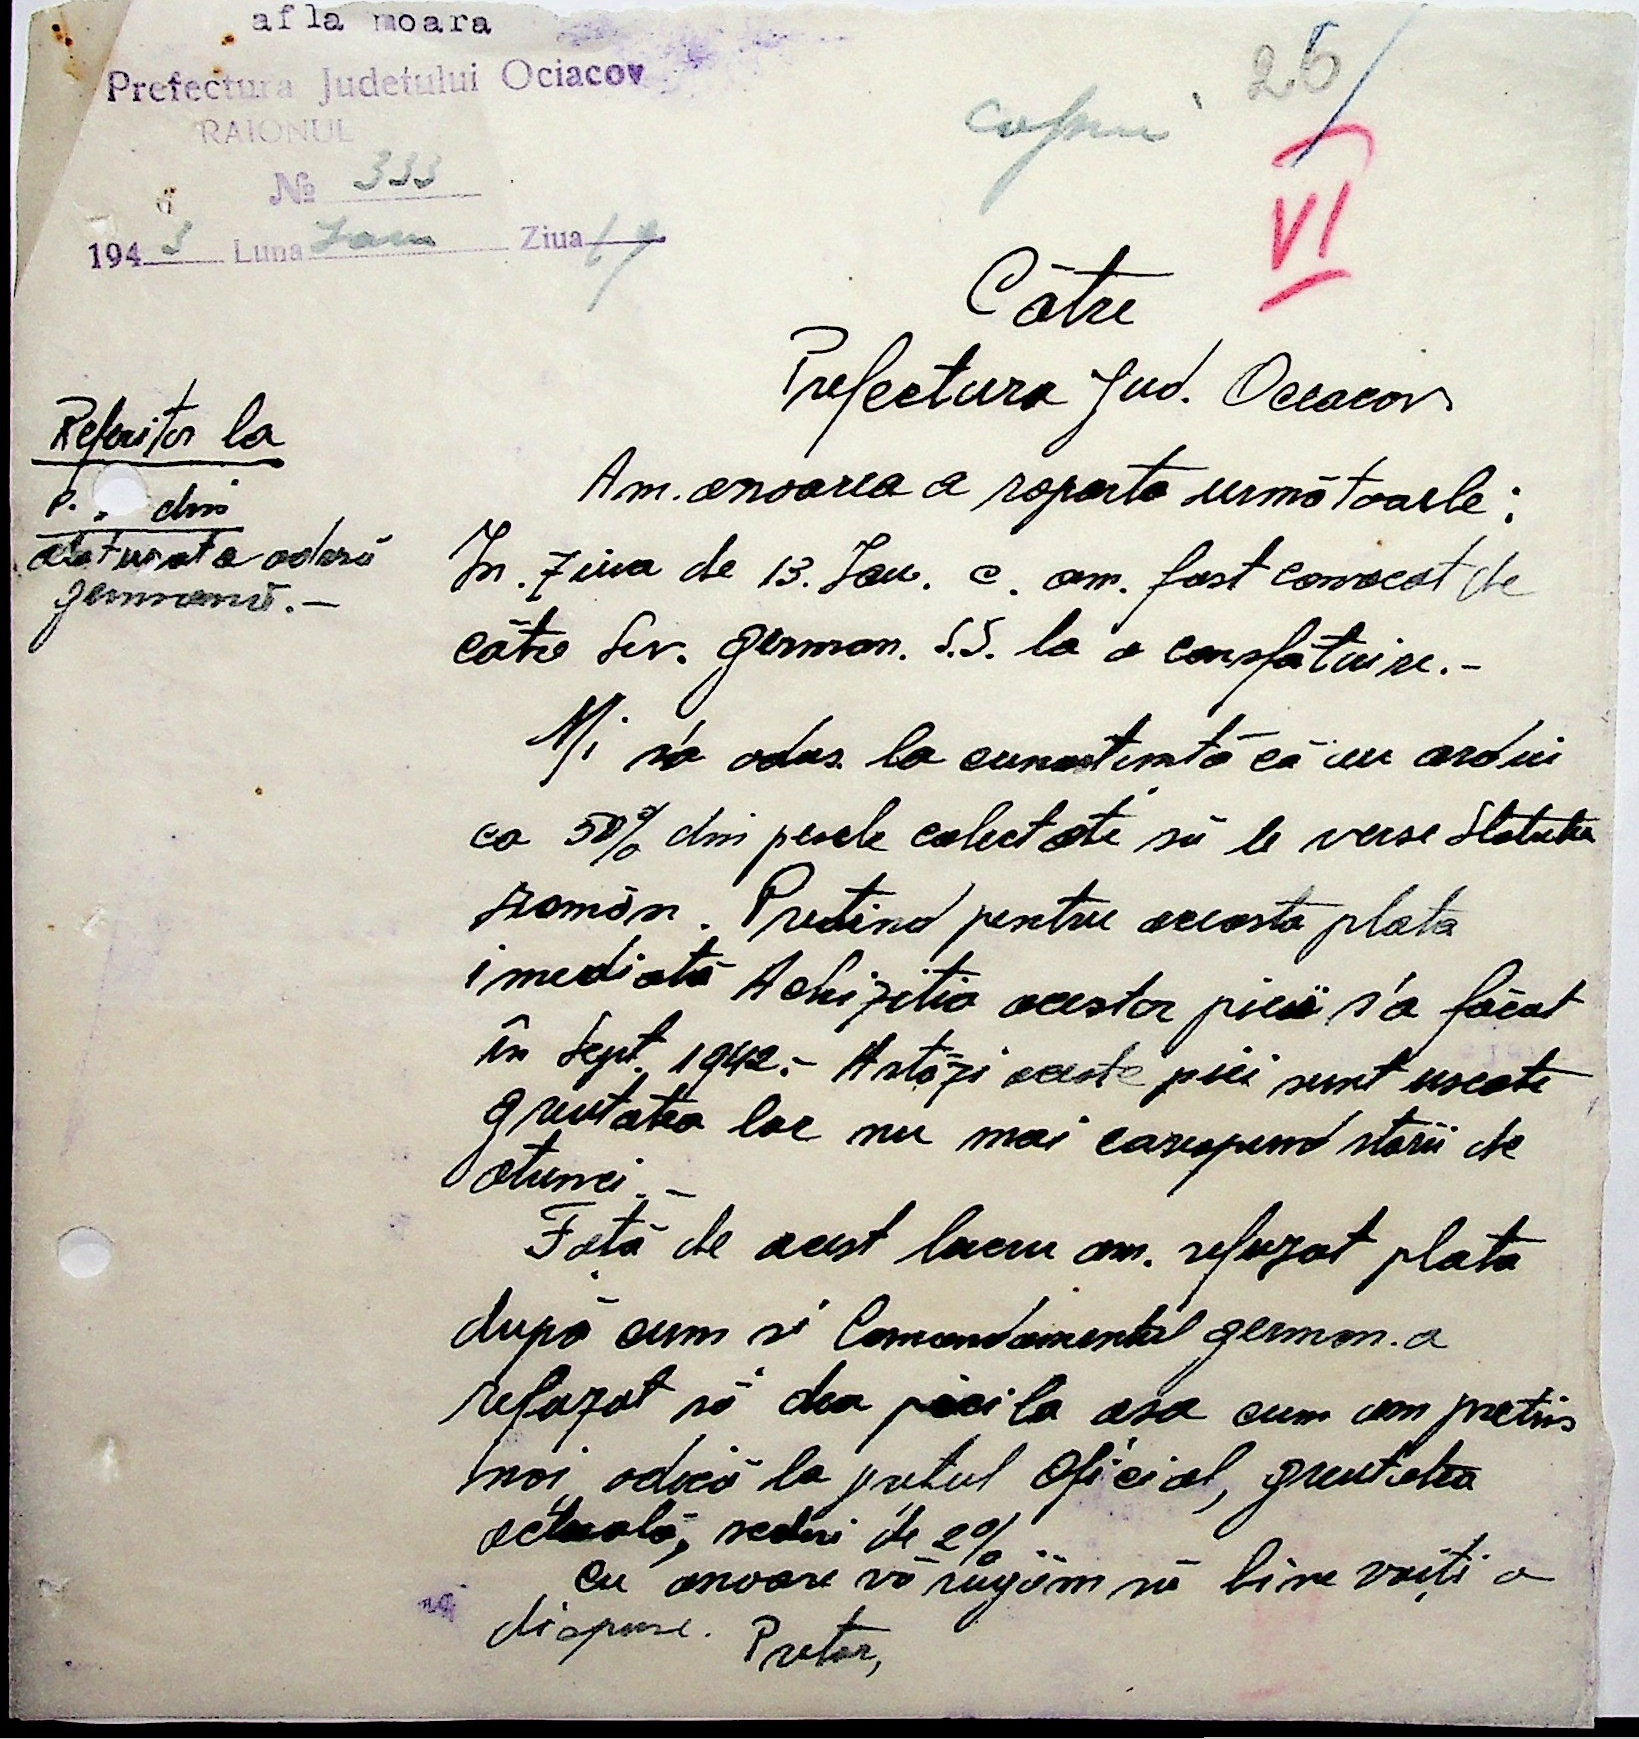 af la moara
Prefectura Judetului Ociacov
RAIONUL
№ 333
194 3 Luna Ian Ziua 19
25
VI
Către
Prefectura Jud. Oceacov
Referitor la
din
adusă
germană.-
Am. onoarea a raporta următoarele:
In. Ziua de 13. Ian. c. am. fost convocat de
către Serv. german. S.S. la o consfătuire.-
Mi s'a adus la cunostintă că au ordin
ca 50% din pieile colectate să le verse Statului
Român. Pretind pentru aceasta plata
imediată Achizitia acestor piei s'a făcut
în Sept. 1942.- Astăzi aceste piei sunt uscate
greutatea lor nu mai corespund stării de
atunci.-
Fată de acest lucru am. refuzat plata
după cum si Comandamentul german. a
refuzat să dea pieila asa cum am pretins
noi adică la pretul oficial, greutatea
actuală, scăderi de 2%
cu onoare vă rugăm să bine voiți a
dispune.
Pretor,